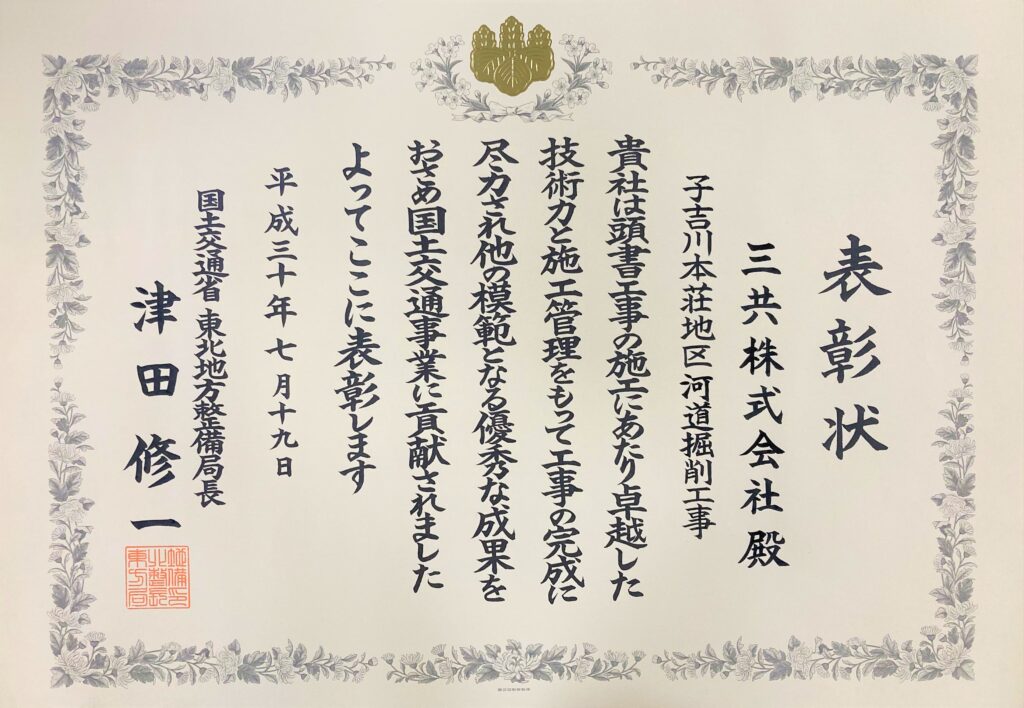 表彰状
三共株式会社殿
子吉川本荘地区河道掘削工事
貴社は頭書工事の施工にあたり卓越した
技術力と施工管理をもって工事の完成に
尽力され他の模範となる優秀な成果を
おさめ国土交通事業に貢献されました
よってここに表彰します
平成三十年七月十九日
国土交通省 東北地方整備局長
津田修一